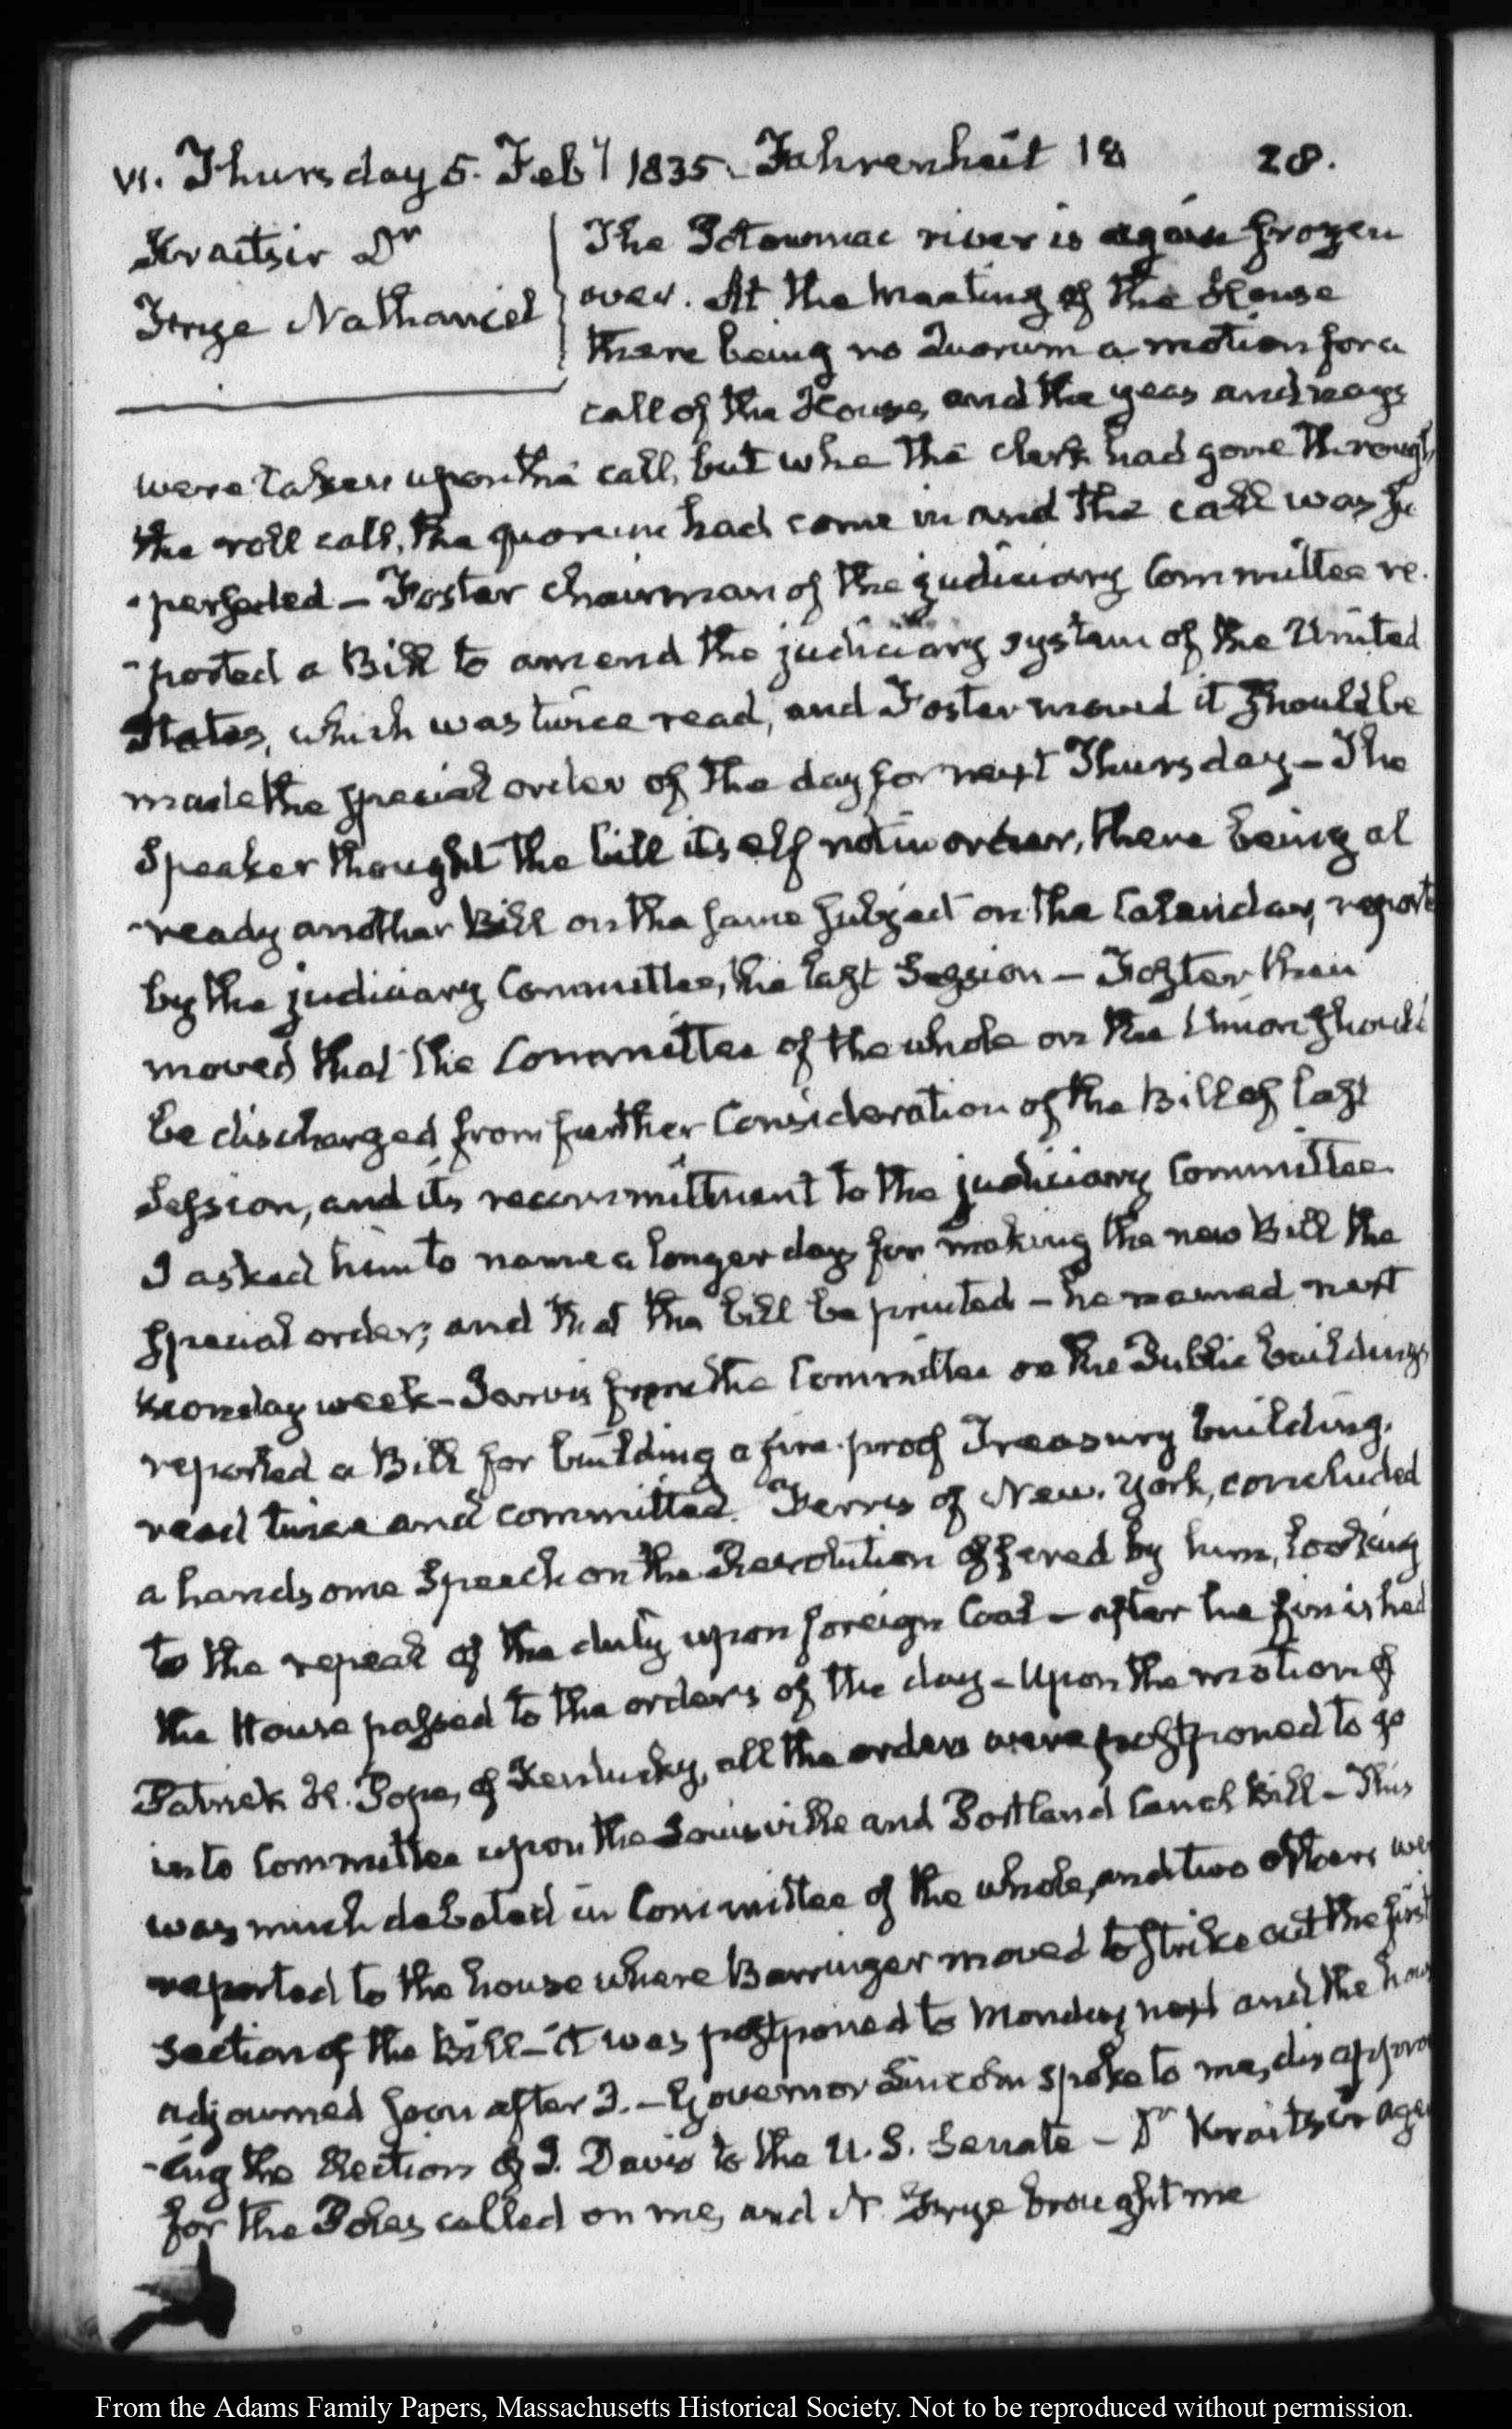 VI. Thursday 5. Feb.y 1835. Fahrenheit 18 28.
Kraitsir Dr
Frye Nathaniel
The Potowmac river is again frozen
over. At the meeting of the House
there being no Quorum a motion for a
call of the House, and the yeas and nays
were taken upon the call, but whe the clerk had gone through
the roll call, the quorum had come in and the call was su
-perseded – Foster chairman of the judiciary Committee re.
-ported a Bill to amend the judiciary system of the United
States, which was twice read, and Foster moved it should be
made the special order of the day for next Thursday – The
Speaker thought the bill itself not in order, there being al
-ready another Bill on the same subject on the Calendar, report
by the judiciary Committee, the last Session – Foster then
moved that the Committee of the whole on the Union should
be discharged from further Consideration of the Bill of last
Session, and its recommitment to the judiciary Committee.
I asked him to name a longer day for making the new Bill the
special order; and that the bill be printed – he named next
Monday week – Jarvis from the Committee on the Public buildings
reported a Bill for building a fire-proof Treasury building.
read twice and committed. Ferris of New-York, concluded
a handsome Speech on the Resolution offered by him, looking
to the repeal of the duty upon foreign Coal – after he finished
the House passed to the orders of the day – Upon the motion of
Patrick H. Pope, of Kentucky, all the orders were postponed to go
into Committee upon the Louisville and Portland Canal Bill – This
was much debated in Committee of the whole, and two others we
reported to the house where Barringer moved to strike out the first
section of the Bill – it was postponed to Monday next and the hou
adjourned soon after 3. – Governor Lincoln spoke to me, disapprov
-ing the Election of J. Davis to the U.S. Senate – Dr Kraitsir age
for the Poles called on me, and N. Frye brought me
From the Adams Family Papers, Massachusetts Historical Society. Not to be reproduced without permission.